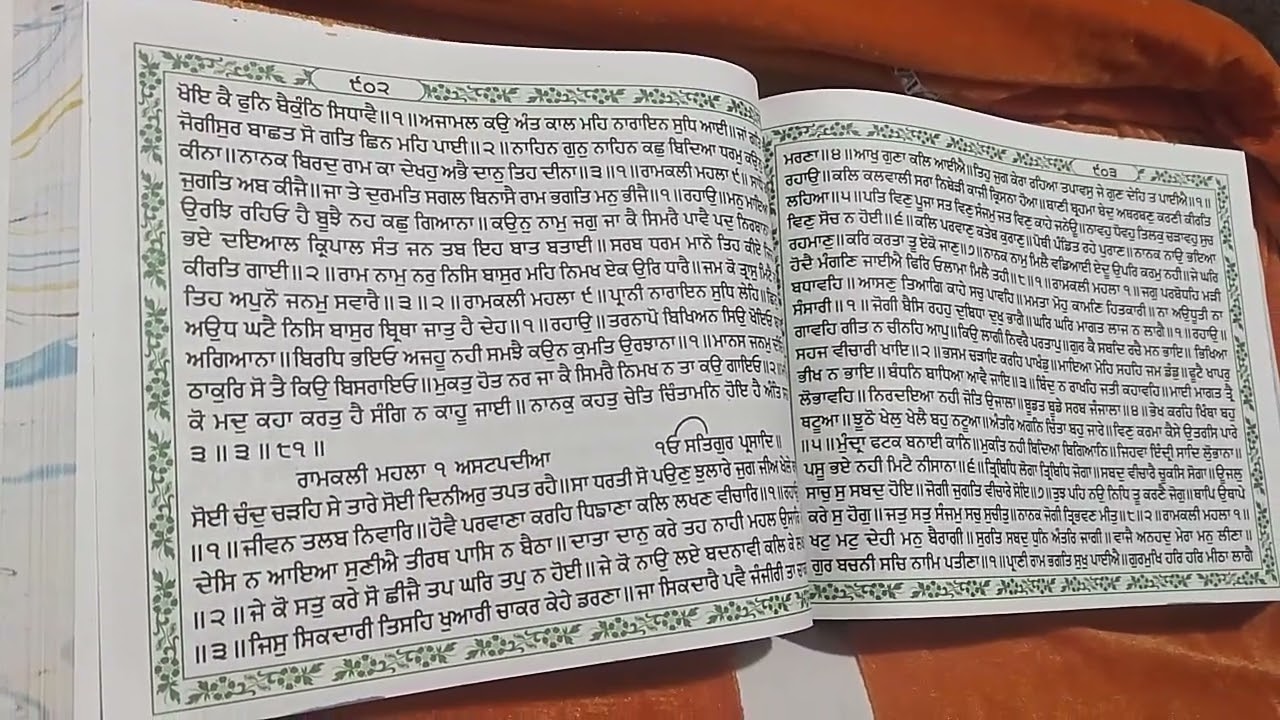 ੯੦੨
ਖੋਇ ਕੈ ਫੁਨਿ ਬੈਕੁੰਠਿ ਸਿਧਾਵੈ॥੧॥ਅਜਾਮਲ ਕਉ ਅੰਤ ਕਾਲ ਮਹਿ ਨਾਰਾਇਨ ਸੁਧਿ ਆਈ॥ਜਾਂ ਗਤਿ
ਜੋਗੀਸੁਰ ਬਾਛਤ ਸੋ ਗਤਿ ਛਿਨ ਮਹਿ ਪਾਈ॥੨॥ਨਾਹਿਨ ਗੁਨੁ ਨਾਹਿਨ ਕਛੁ ਬਿਦਿਆ ਧਰਮੁ ਕਉਨੁ
ਕੀਨਾ॥ਨਾਨਕ ਬਿਰਦੁ ਰਾਮ ਕਾ ਦੇਖਹੁ ਅਭੈ ਦਾਨੁ ਤਿਹ ਦੀਨਾ॥੩॥੧॥ਰਾਮਕਲੀ ਮਹਲਾ ੯॥
ਜੁਗਤਿ ਅਬ ਕੀਜੈ॥ਜਾ ਤੇ ਦੁਰਮਤਿ ਸਗਲ ਬਿਨਾਸੈ ਰਾਮ ਭਗਤਿ ਮਨੁ ਭੀਜੈ॥੧॥ਰਹਾਉ॥ਮਨੁ ਮਾਇਆ
ਉਰਝਿ ਰਹਿਓ ਹੈ ਬੂਝੈ ਨਹ ਕਛੁ ਗਿਆਨਾ॥ਕਉਨੁ ਨਾਮੁ ਜਗੁ ਜਾ ਕੈ ਸਿਮਰੈ ਪਾਵੈ ਪਦੁ ਨਿਰਬਾਨਾ
ਭਏ ਦਇਆਲ ਕ੍ਰਿਪਾਲ ਸੰਤ ਜਨ ਤਬ ਇਹ ਬਾਤ ਬਤਾਈ॥ਸਰਬ ਧਰਮ ਮਾਨੋ ਤਿਹ ਕੀਏ ਜਿਹ
ਕੀਰਤਿ ਗਾਈ॥੨॥ਰਾਮ ਨਾਮੁ ਨਰੁ ਨਿਸਿ ਬਾਸੁਰ ਮਹਿ ਨਿਮਖ ਏਕ ਉਰਿ ਧਾਰੈ॥ਜਮ ਕੋ ਤ੍ਰਾਸੁ ਮਿਟੈ
ਤਿਹ ਅਪੁਨੋ ਜਨਮੁ ਸਵਾਰੈ॥੩॥੨॥ਰਾਮਕਲੀ ਮਹਲਾ ੯॥ਪ੍ਰਾਨੀ ਨਾਰਾਇਨ ਸੁਧਿ ਲੇਹਿ॥
ਅਉਧ ਘਟੈ ਨਿਸਿ ਬਾਸੁਰ ਬ੍ਰਿਥਾ ਜਾਤੁ ਹੈ ਦੇਹ॥੧॥ਰਹਾਉ॥ਤਰਨਾਪੋ ਬਿਖਿਅਨ ਸਿਉ ਖੋਇਓ
ਅਗਿਆਨਾ॥ਬਿਰਧਿ ਭਇਓ ਅਜਹੂ ਨਹੀ ਸਮਝੈ ਕਉਨ ਕੁਮਤਿ ਉਰਝਾਨਾ॥੧॥ਮਾਨਸ ਜਨਮੁ
ਠਾਕੁਰਿ ਸੋ ਤੈ ਕਿਉ ਬਿਸਰਾਇਓ॥ਮੁਕਤੁ ਹੋਤ ਨਰ ਜਾ ਕੈ ਸਿਮਰੈ ਨਿਮਖ ਨ ਤਾ ਕਉ ਗਾਇਓ॥੨॥
ਕੋ ਮਦੁ ਕਹਾ ਕਰਤੁ ਹੈ ਸੰਗਿ ਨ ਕਾਹੂ ਜਾਈ॥ਨਾਨਕੁ ਕਹਤੁ ਚੇਤਿ ਚਿੰਤਾਮਨਿ ਹੋਇ ਹੈ ਅੰਤਿ
੩॥੩॥੮੧॥
ਰਾਮਕਲੀ ਮਹਲਾ ੧ ਅਸਟਪਦੀਆ ੴ ਸਤਿਗੁਰ ਪ੍ਰਸਾਦਿ॥
ਸੋਈ ਚੰਦੁ ਚੜਹਿ ਸੇ ਤਾਰੇ ਸੋਈ ਦਿਨੀਅਰੁ ਤਪਤ ਰਹੈ॥ਸਾ ਧਰਤੀ ਸੋ ਪਉਣੁ ਝੁਲਾਰੇ ਜੁਗ ਜੀਅ ਖੇਲੇ
॥੧॥ਜੀਵਨ ਤਲਬ ਨਿਵਾਰਿ॥ਹੋਵੈ ਪਰਵਾਣਾ ਕਰਹਿ ਧਿਙਾਣਾ ਕਲਿ ਲਖਣ ਵੀਚਾਰਿ॥੧॥ਰਹਾਉ
ਦੇਸਿ ਨ ਆਇਆ ਸੁਣੀਐ ਤੀਰਥ ਪਾਸਿ ਨ ਬੈਠਾ॥ਦਾਤਾ ਦਾਨੁ ਕਰੇ ਤਹ ਨਾਹੀ ਮਹਲ ਉਸਾਰਿ
॥੨॥ਜੇ ਕੋ ਸਤੁ ਕਰੇ ਸੋ ਛੀਜੈ ਤਪ ਘਰਿ ਤਪੁ ਨ ਹੋਈ॥ਜੇ ਕੋ ਨਾਉ ਲਏ ਬਦਨਾਵੀ ਕਲਿ ਕੇ
॥੩॥ਜਿਸੁ ਸਿਕਦਾਰੀ ਤਿਸਹਿ ਖੁਆਰੀ ਚਾਕਰ ਕੇਹੇ ਡਰਣਾ॥ਜਾ ਸਿਕਦਾਰੈ ਪਵੈ ਜੰਜੀਰੀ ਤਾ
੯੦੩
ਮਰਣਾ॥੪॥ਆਖੁ ਗੁਣਾ ਕਲਿ ਆਈਐ॥ਤਿਹੁ ਜੁਗ ਕੇਰਾ ਰਹਿਆ ਤਪਾਵਸੁ ਜੇ ਗੁਣ ਦੇਹਿ ਤ ਪਾਈਐ॥੧॥
ਰਹਾਉ॥ਕਲਿ ਕਲਵਾਲੀ ਸਰਾ ਨਿਬੇੜੀ ਕਾਜੀ ਕ੍ਰਿਸਨਾ ਹੋਆ॥ਬਾਣੀ ਬ੍ਰਹਮਾ ਬੇਦੁ ਅਥਰਬਣੁ ਕਰਣੀ ਕੀਰਤਿ
ਲਹਿਆ॥੫॥ਪਤਿ ਵਿਣੁ ਪੂਜਾ ਸਤ ਵਿਣੁ ਸੰਜਮੁ ਜਤ ਵਿਣੁ ਕਾਹੇ ਜਨੇਊ॥ਨਾਵਹੁ ਧੋਵਹੁ ਤਿਲਕੁ ਚੜਾਵਹੁ ਸੁਚ
ਵਿਣੁ ਸੋਚ ਨ ਹੋਈ॥੬॥ਕਲਿ ਪਰਵਾਣੁ ਕਤੇਬ ਕੁਰਾਣੁ॥ਪੋਥੀ ਪੰਡਿਤ ਰਹੇ ਪੁਰਾਣ॥ਨਾਨਕ ਨਾਉ ਭਇਆ
ਰਹਮਾਣੁ॥ਕਰਿ ਕਰਤਾ ਤੂ ਏਕੋ ਜਾਣੁ॥੭॥ਨਾਨਕ ਨਾਮੁ ਮਿਲੈ ਵਡਿਆਈ ਏਦੂ ਉਪਰਿ ਕਰਮੁ ਨਹੀ॥ਜੇ ਘਰਿ
ਹੋਦੈ ਮੰਗਣਿ ਜਾਈਐ ਫਿਰਿ ਓਲਾਮਾ ਮਿਲੈ ਤਹੀ॥੮॥੧॥ਰਾਮਕਲੀ ਮਹਲਾ ੧॥ਜਗੁ ਪਰਬੋਧਹਿ ਮੜੀ
ਬਧਾਵਹਿ॥ਆਸਣੁ ਤਿਆਗਿ ਕਾਹੇ ਸਚੁ ਪਾਵਹਿ॥ਮਮਤਾ ਮੋਹੁ ਕਾਮਣਿ ਹਿਤਕਾਰੀ॥ਨਾ ਅਉਧੂਤੀ ਨਾ
ਸੰਸਾਰੀ॥੧॥ਜੋਗੀ ਬੈਸਿ ਰਹਹੁ ਦੁਬਿਧਾ ਦੁਖੁ ਭਾਗੈ॥ਘਰਿ ਘਰਿ ਮਾਗਤ ਲਾਜ ਨ ਲਾਗੈ॥੧॥ਰਹਾਉ॥
ਗਾਵਹਿ ਗੀਤ ਨ ਚੀਨਹਿ ਆਪੁ॥ਕਿਉ ਲਾਗੀ ਨਿਵਰੈ ਪਰਤਾਪੁ॥ਗੁਰ ਕੈ ਸਬਦਿ ਰਚੈ ਮਨ ਭਾਇ॥ਭਿਖਿਆ
ਸਹਜ ਵੀਚਾਰੀ ਖਾਇ॥੨॥ਭਸਮ ਚੜਾਇ ਕਰਹਿ ਪਾਖੰਡੁ॥ਮਾਇਆ ਮੋਹਿ ਸਹਹਿ ਜਮ ਡੰਡੁ॥ਫੂਟੈ ਖਾਪਰੁ
ਭੀਖ ਨ ਭਾਇ॥ਬੰਧਨਿ ਬਾਧਿਆ ਆਵੈ ਜਾਇ॥੩॥ਬਿੰਦੁ ਨ ਰਾਖਹਿ ਜਤੀ ਕਹਾਵਹਿ॥ਮਾਈ ਮਾਗਤ ਤ੍ਰੈ
ਲੋਭਾਵਹਿ॥ਨਿਰਦਇਆ ਨਹੀ ਜੋਤਿ ਉਜਾਲਾ॥ਬੂਡਤ ਬੂਡੇ ਸਰਬ ਜੰਜਾਲਾ॥੪॥ਭੇਖ ਕਰਹਿ ਖਿੰਥਾ ਬਹੁ
ਥਟੂਆ॥ਝੂਠੋ ਖੇਲੁ ਖੇਲੈ ਬਹੁ ਨਟੂਆ॥ਅੰਤਰਿ ਅਗਨਿ ਚਿੰਤਾ ਬਹੁ ਜਾਰੇ॥ਵਿਣੁ ਕਰਮਾ ਕੈਸੇ ਉਤਰਸਿ ਪਾਰੇ
॥੫॥ਮੁੰਦ੍ਰਾ ਫਟਕ ਬਨਾਈ ਕਾਨਿ॥ਮੁਕਤਿ ਨਹੀ ਬਿਦਿਆ ਬਿਗਿਆਨਿ॥ਜਿਹਵਾ ਇੰਦ੍ਰੀ ਸਾਦਿ ਲੁੋਭਾਨਾ॥
ਪਸੂ ਭਏ ਨਹੀ ਮਿਟੈ ਨੀਸਾਨਾ॥੬॥ਤ੍ਰਿਬਿਧਿ ਲੋਗਾ ਤ੍ਰਿਬਿਧਿ ਜੋਗਾ॥ਸਬਦੁ ਵੀਚਾਰੈ ਚੂਕਸਿ ਸੋਗਾ॥ਊਜਲੁ
ਸਾਚੁ ਸੁ ਸਬਦੁ ਹੋਇ॥ਜੋਗੀ ਜੁਗਤਿ ਵੀਚਾਰੇ ਸੋਇ॥੭॥ਤੁਝ ਪਹਿ ਨਉ ਨਿਧਿ ਤੂ ਕਰਣੈ ਜੋਗੁ॥ਥਾਪਿ ਉਥਾਪੇ
ਕਰੇ ਸੁ ਹੋਗੁ॥ਜਤੁ ਸਤੁ ਸੰਜਮੁ ਸਚੁ ਸੁਚੀਤੁ॥ਨਾਨਕ ਜੋਗੀ ਤ੍ਰਿਭਵਣ ਮੀਤੁ॥੮॥੨॥ਰਾਮਕਲੀ ਮਹਲਾ ੧॥
ਖਟੁ ਮਟੁ ਦੇਹੀ ਮਨੁ ਬੈਰਾਗੀ॥ਸੁਰਤਿ ਸਬਦੁ ਧੁਨਿ ਅੰਤਰਿ ਜਾਗੀ॥ਵਾਜੈ ਅਨਹਦੁ ਮੇਰਾ ਮਨੁ ਲੀਣਾ॥
ਗੁਰ ਬਚਨੀ ਸਚਿ ਨਾਮਿ ਪਤੀਣਾ॥੧॥ਪ੍ਰਾਣੀ ਰਾਮ ਭਗਤਿ ਸੁਖੁ ਪਾਈਐ॥ਗੁਰਮੁਖਿ ਹਰਿ ਹਰਿ ਮੀਠਾ ਲਾਗੈ